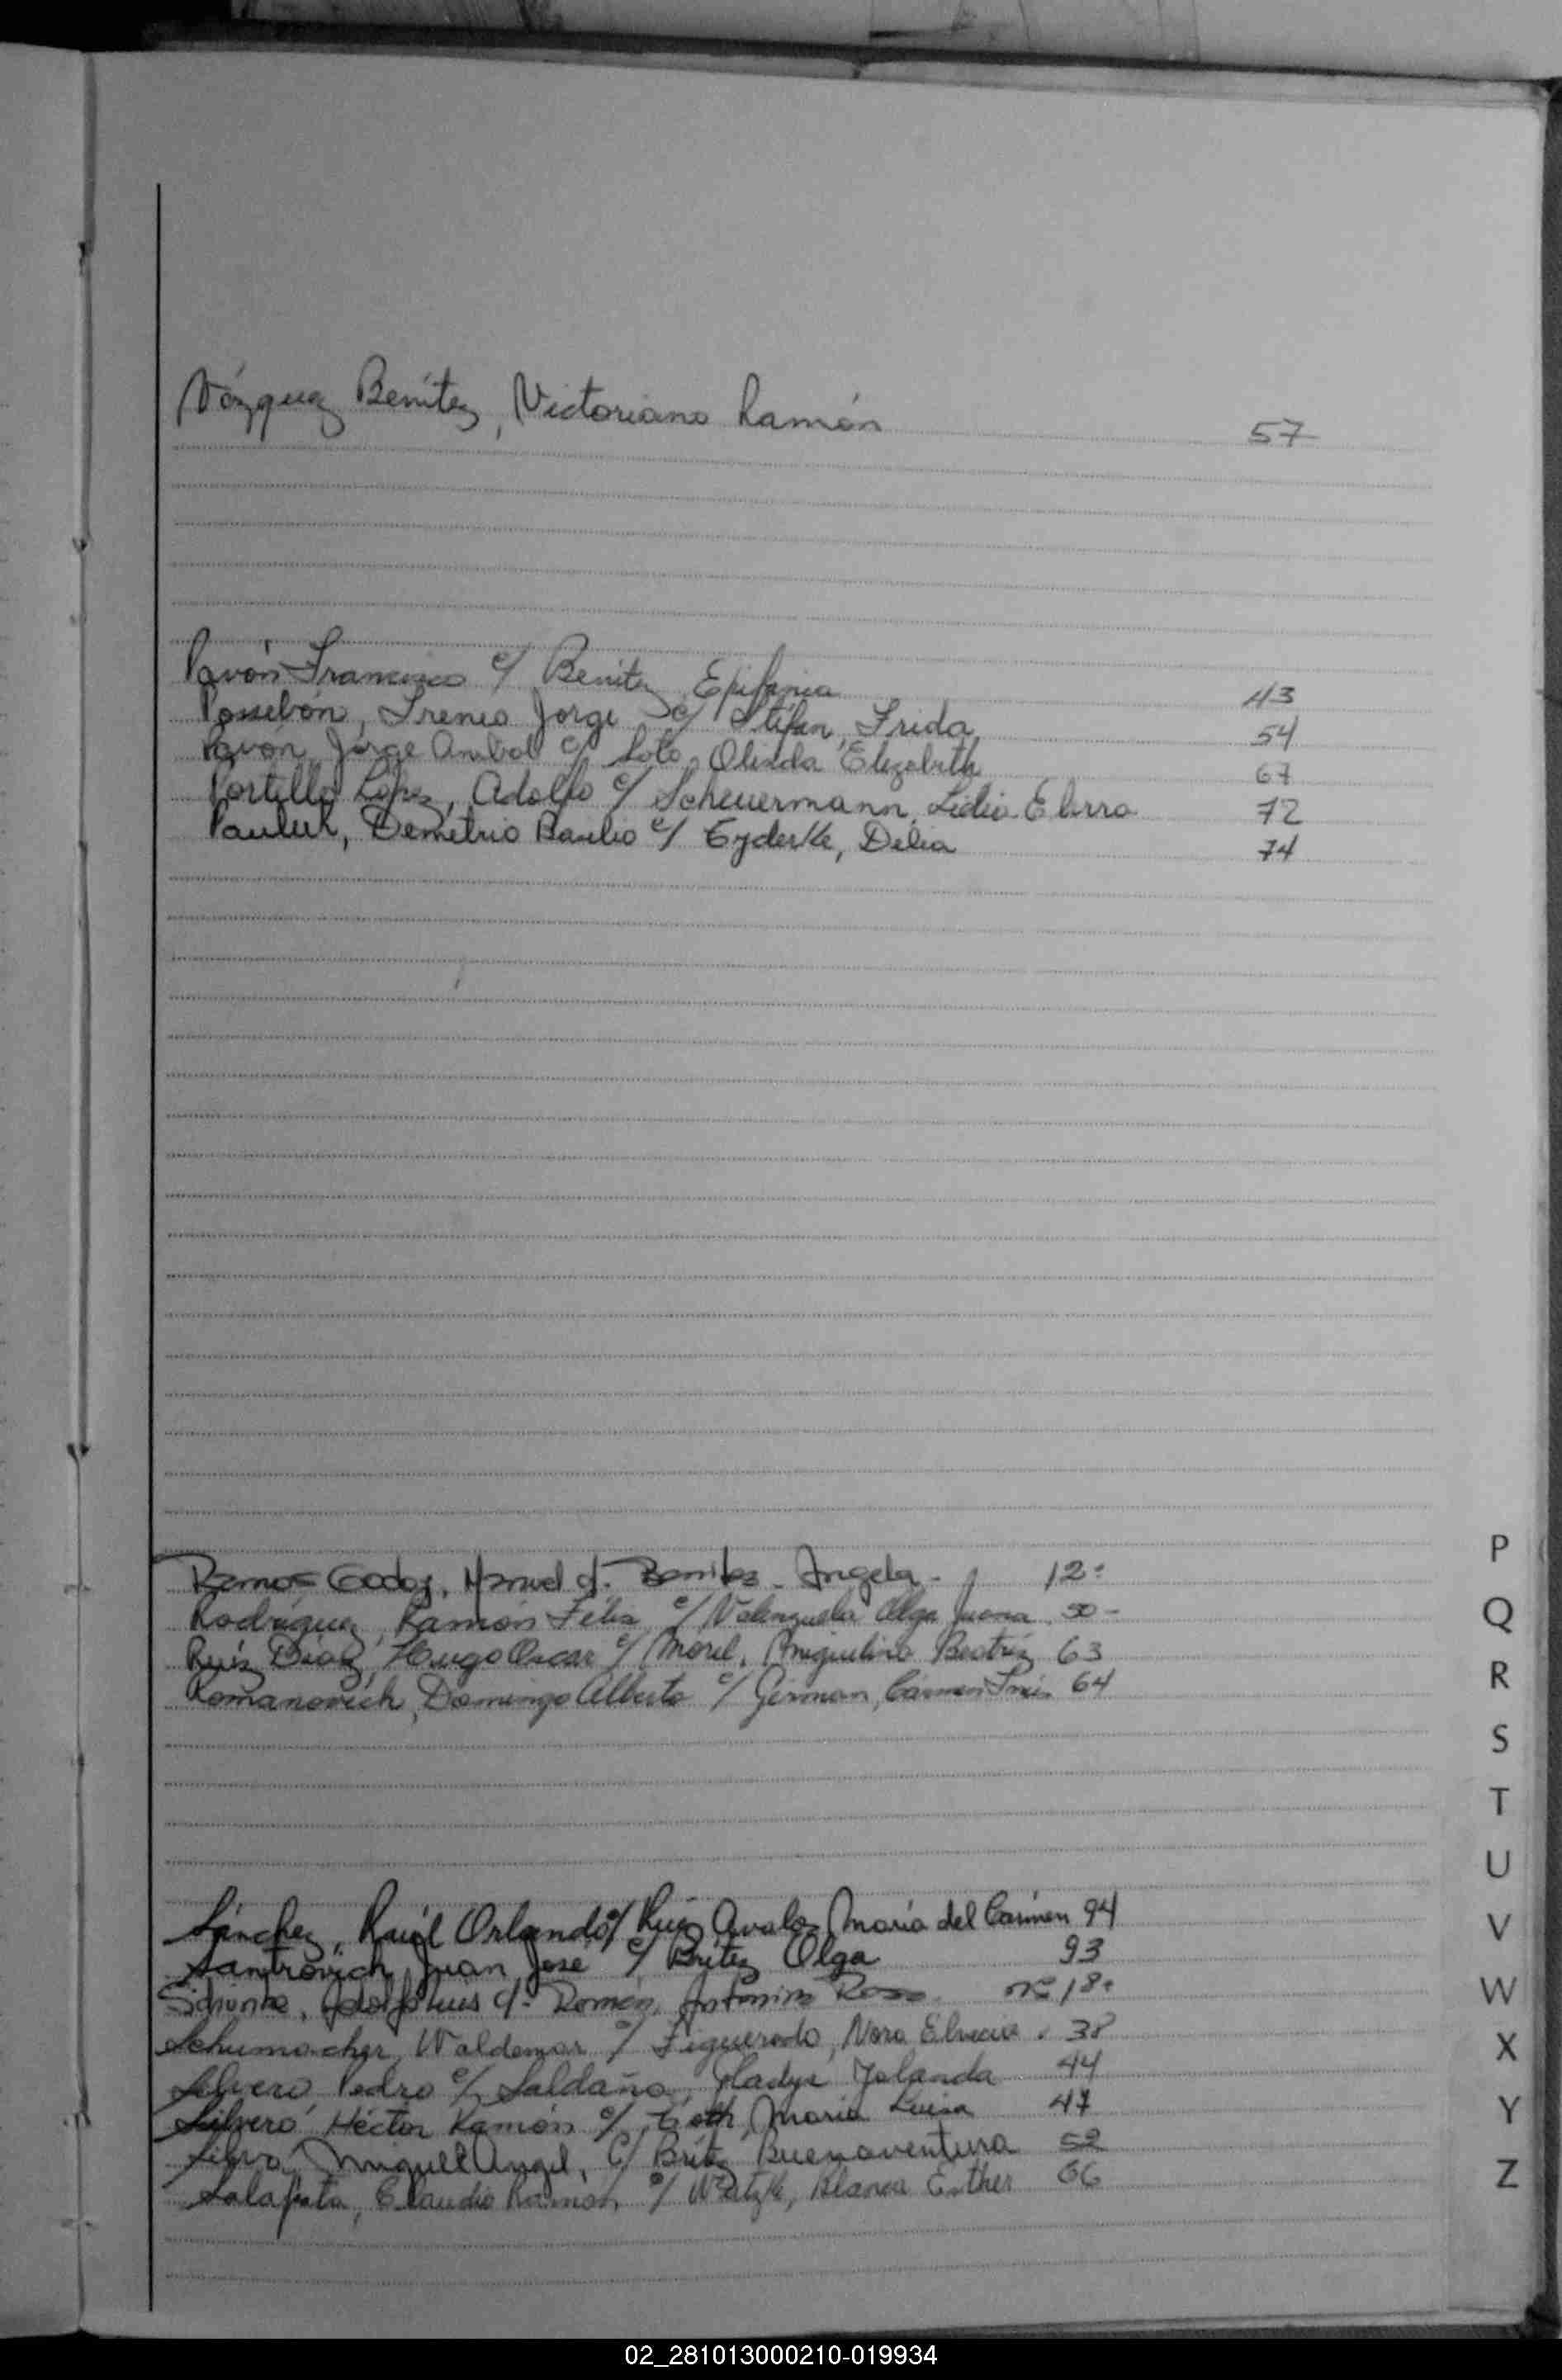 Vázquez Benítez, Victoriano Ramón 57
Pavón Francisco c/ Benitez Epifania 43
Possebón, Ireneo Jorge c/ Stefan, Frida 54
Pavón, Jorge Anibal c/ Soto, Olinda Elizabeth 67
Portillo López, Adolfo c/ Scheuermann, Lidia 72
Pauluk, Demetrio Basilio c/ Delia 74
Ramos Godoy, Manuel c/. Benitez - Angela - 12-
Rodríguez, Ramón Félix c/ Valenzuela Olga Juana 50-
Ruíz Díaz, Hugo Oscar c/ Morel, Miguelina Beatríz 63
Romanovich, Domingo Alberto c/ German, Carmen Inés 64
Sánchez, Raúl Orlando c/ Ruiz Avalos María del Carmen 94
Santrovich, Juan José c/ Brítez Olga 93
Adolfo Luis c/- Román, Antonina Rosa Nº 18-
Schumacher, Waldemar c/ Figueredo, Nora 38
Silvero, Pedro c/ Saldaña, Gladys Yolanda 44
Silvero, Héctor Ramón c/ María Luisa 47
Silva, Miguel Angel, C/ Brítez Buenaventura 52
Claudio Ramon c/ Blanca Esther 66
P
Q
R
S
T
U
V
W
X
Y
Z
02_281013000210-019934